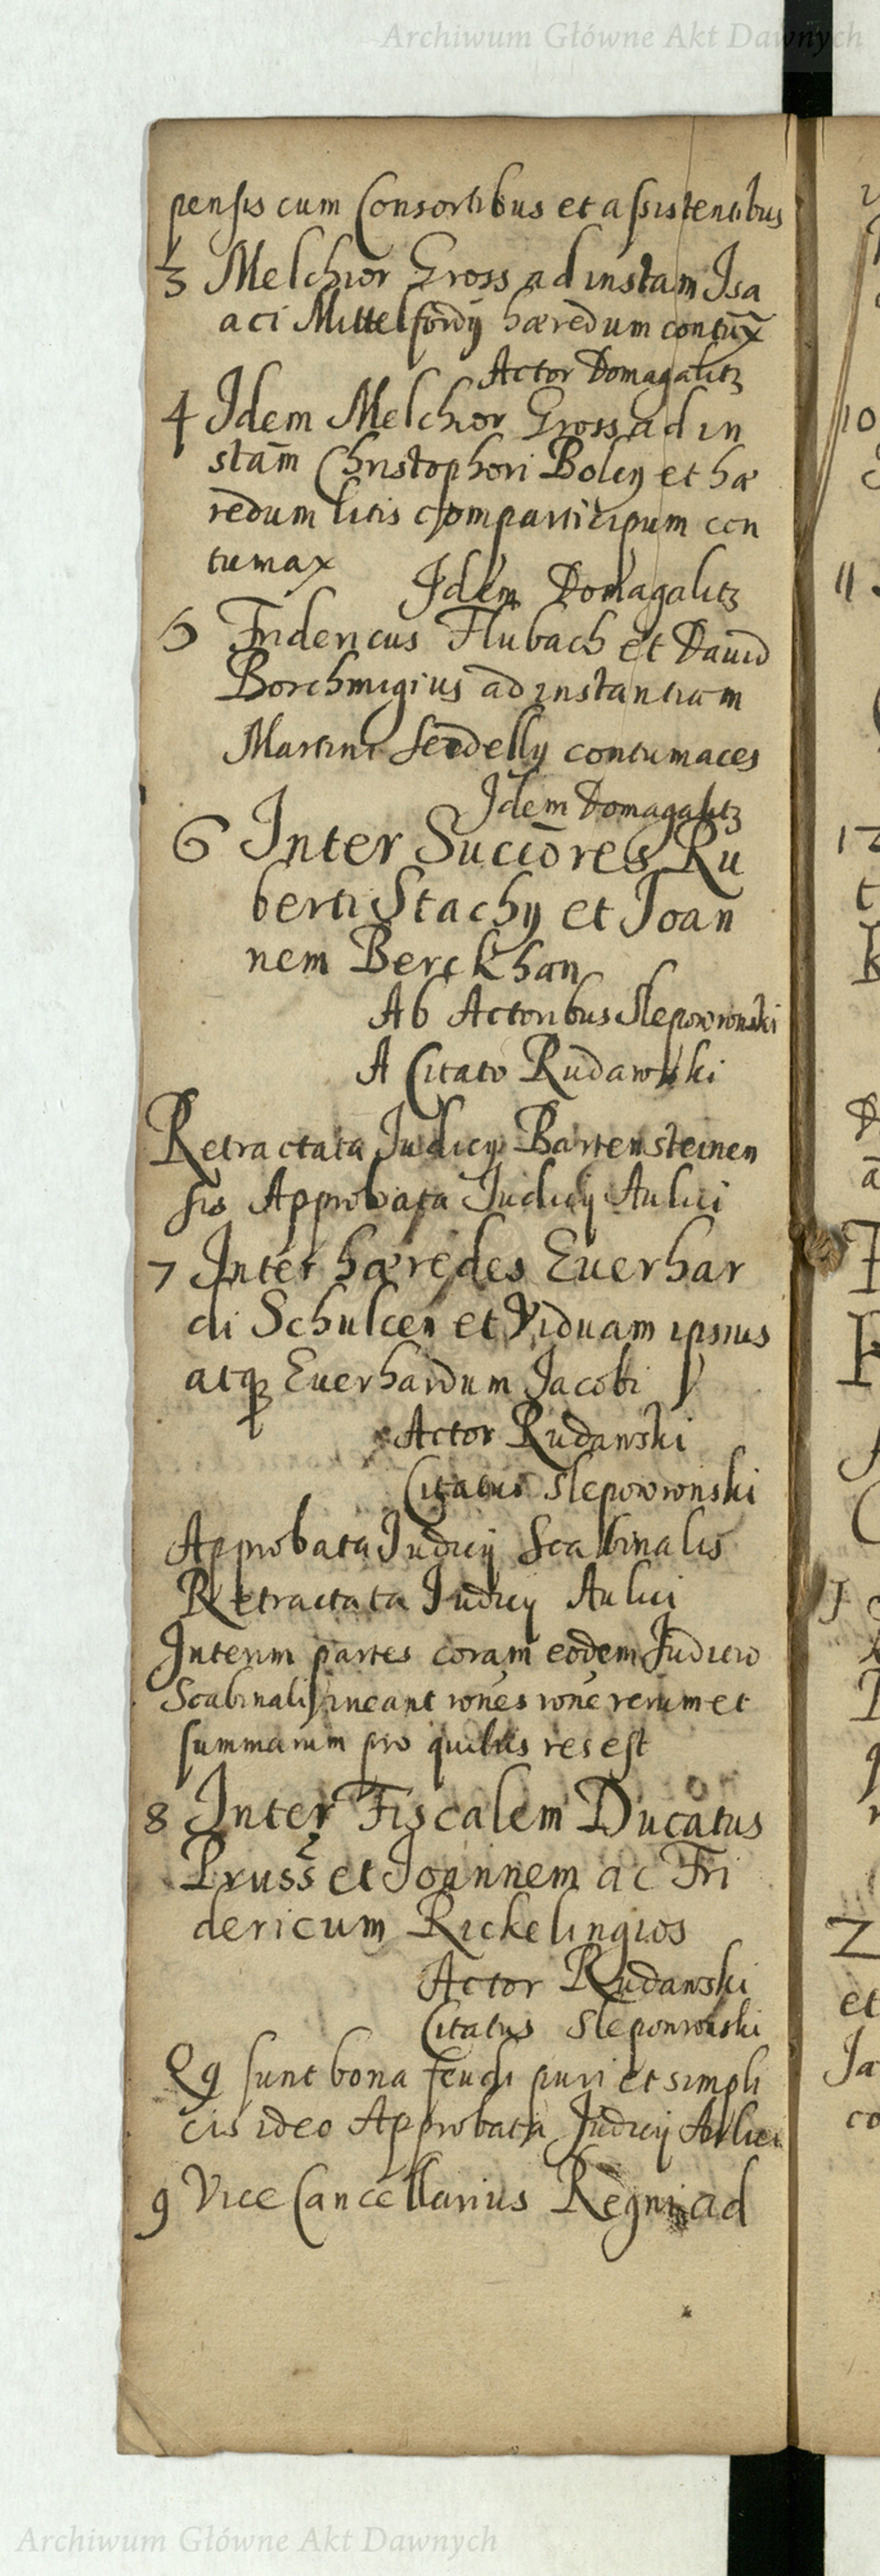 Archiwum Główne Akt Dawnych
pensis cum Consortibus et assistentibus
3 Melchior Gross ad instam Isa
aci Mittelfordÿ hæredum contux
Actor Domagalitz
4 Idem Melchior Gross ad in
stam̄ Christophori Boleÿ et hæ
redum litis comparticipum con
tumax
Idem Domagalitz
5 Fridericus Flubach et Dauid
Borchmigius ad instantiam
Martini Seedellÿ contumaces
Idem Domagalitz
6 Inter Succōres Ru
berti Stachÿ et Joan
nem Berckhan
Ab Actoribus Slepowronski
A Citato Rudawski
Retractata Judicÿ Bartensteinen
sis Approbata Judicÿ Aulici
7 Inter hæredes Euerhar
di Schulcen et Viduam ipsius
atq Euerhardum Jacobi
Actor Rudawski
Citatus Slepowronski
Approbata Judicÿ Scabinalis
Retractata Judicÿ Aulici
Interim partes coram eodem Judicio
Scabinali ineant rōnes rōne rerum et
summarum pro quibus res est
8 Inter Fiscalem Ducatus
Pruss̄ et Joannem ac Fri
dericum Rickelingios
Actor Rudawski
Citatus Slepowronski
Q9 sunt bona feudi puri et simpli
cis ideo Approbata Judicÿ Aulici
9 Vice Cancellarius Regni ad
Archiwum Główne Akt Dawnych